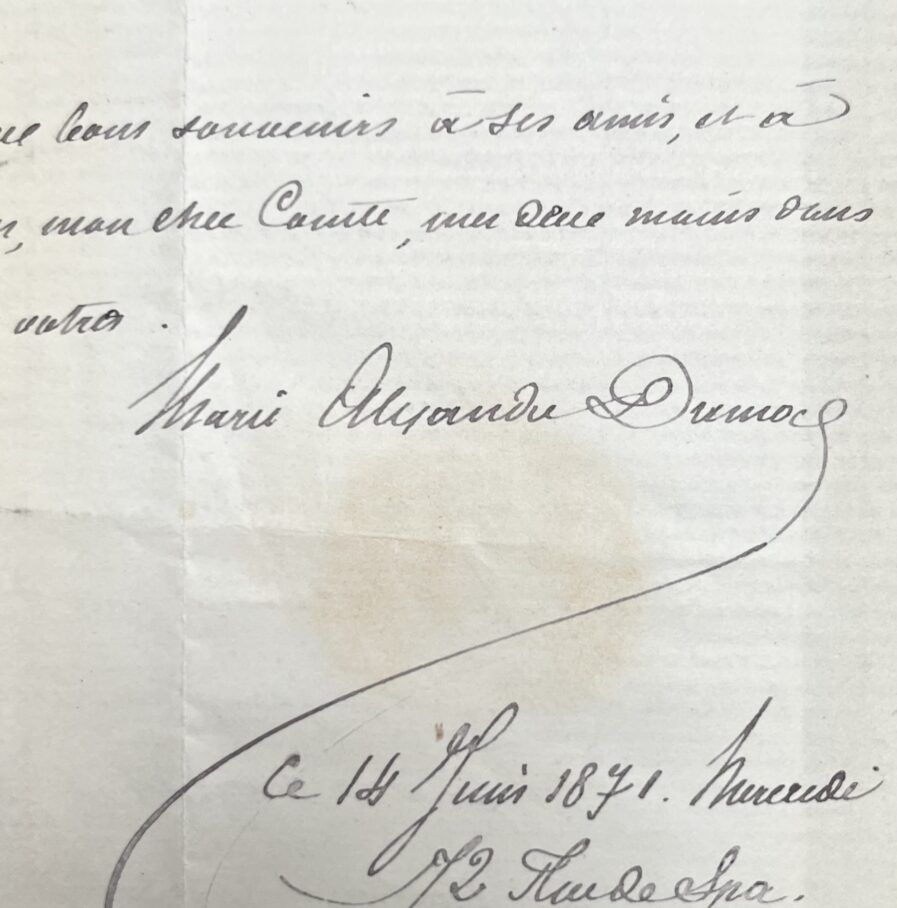 bons souvenirs à ses amis, et à
mon cher Comte, mes deux mains dans
votres.
Marie Alexandre Dumas
Ce 14 Juin 1871. Mercredi
72 Rue de Spa.